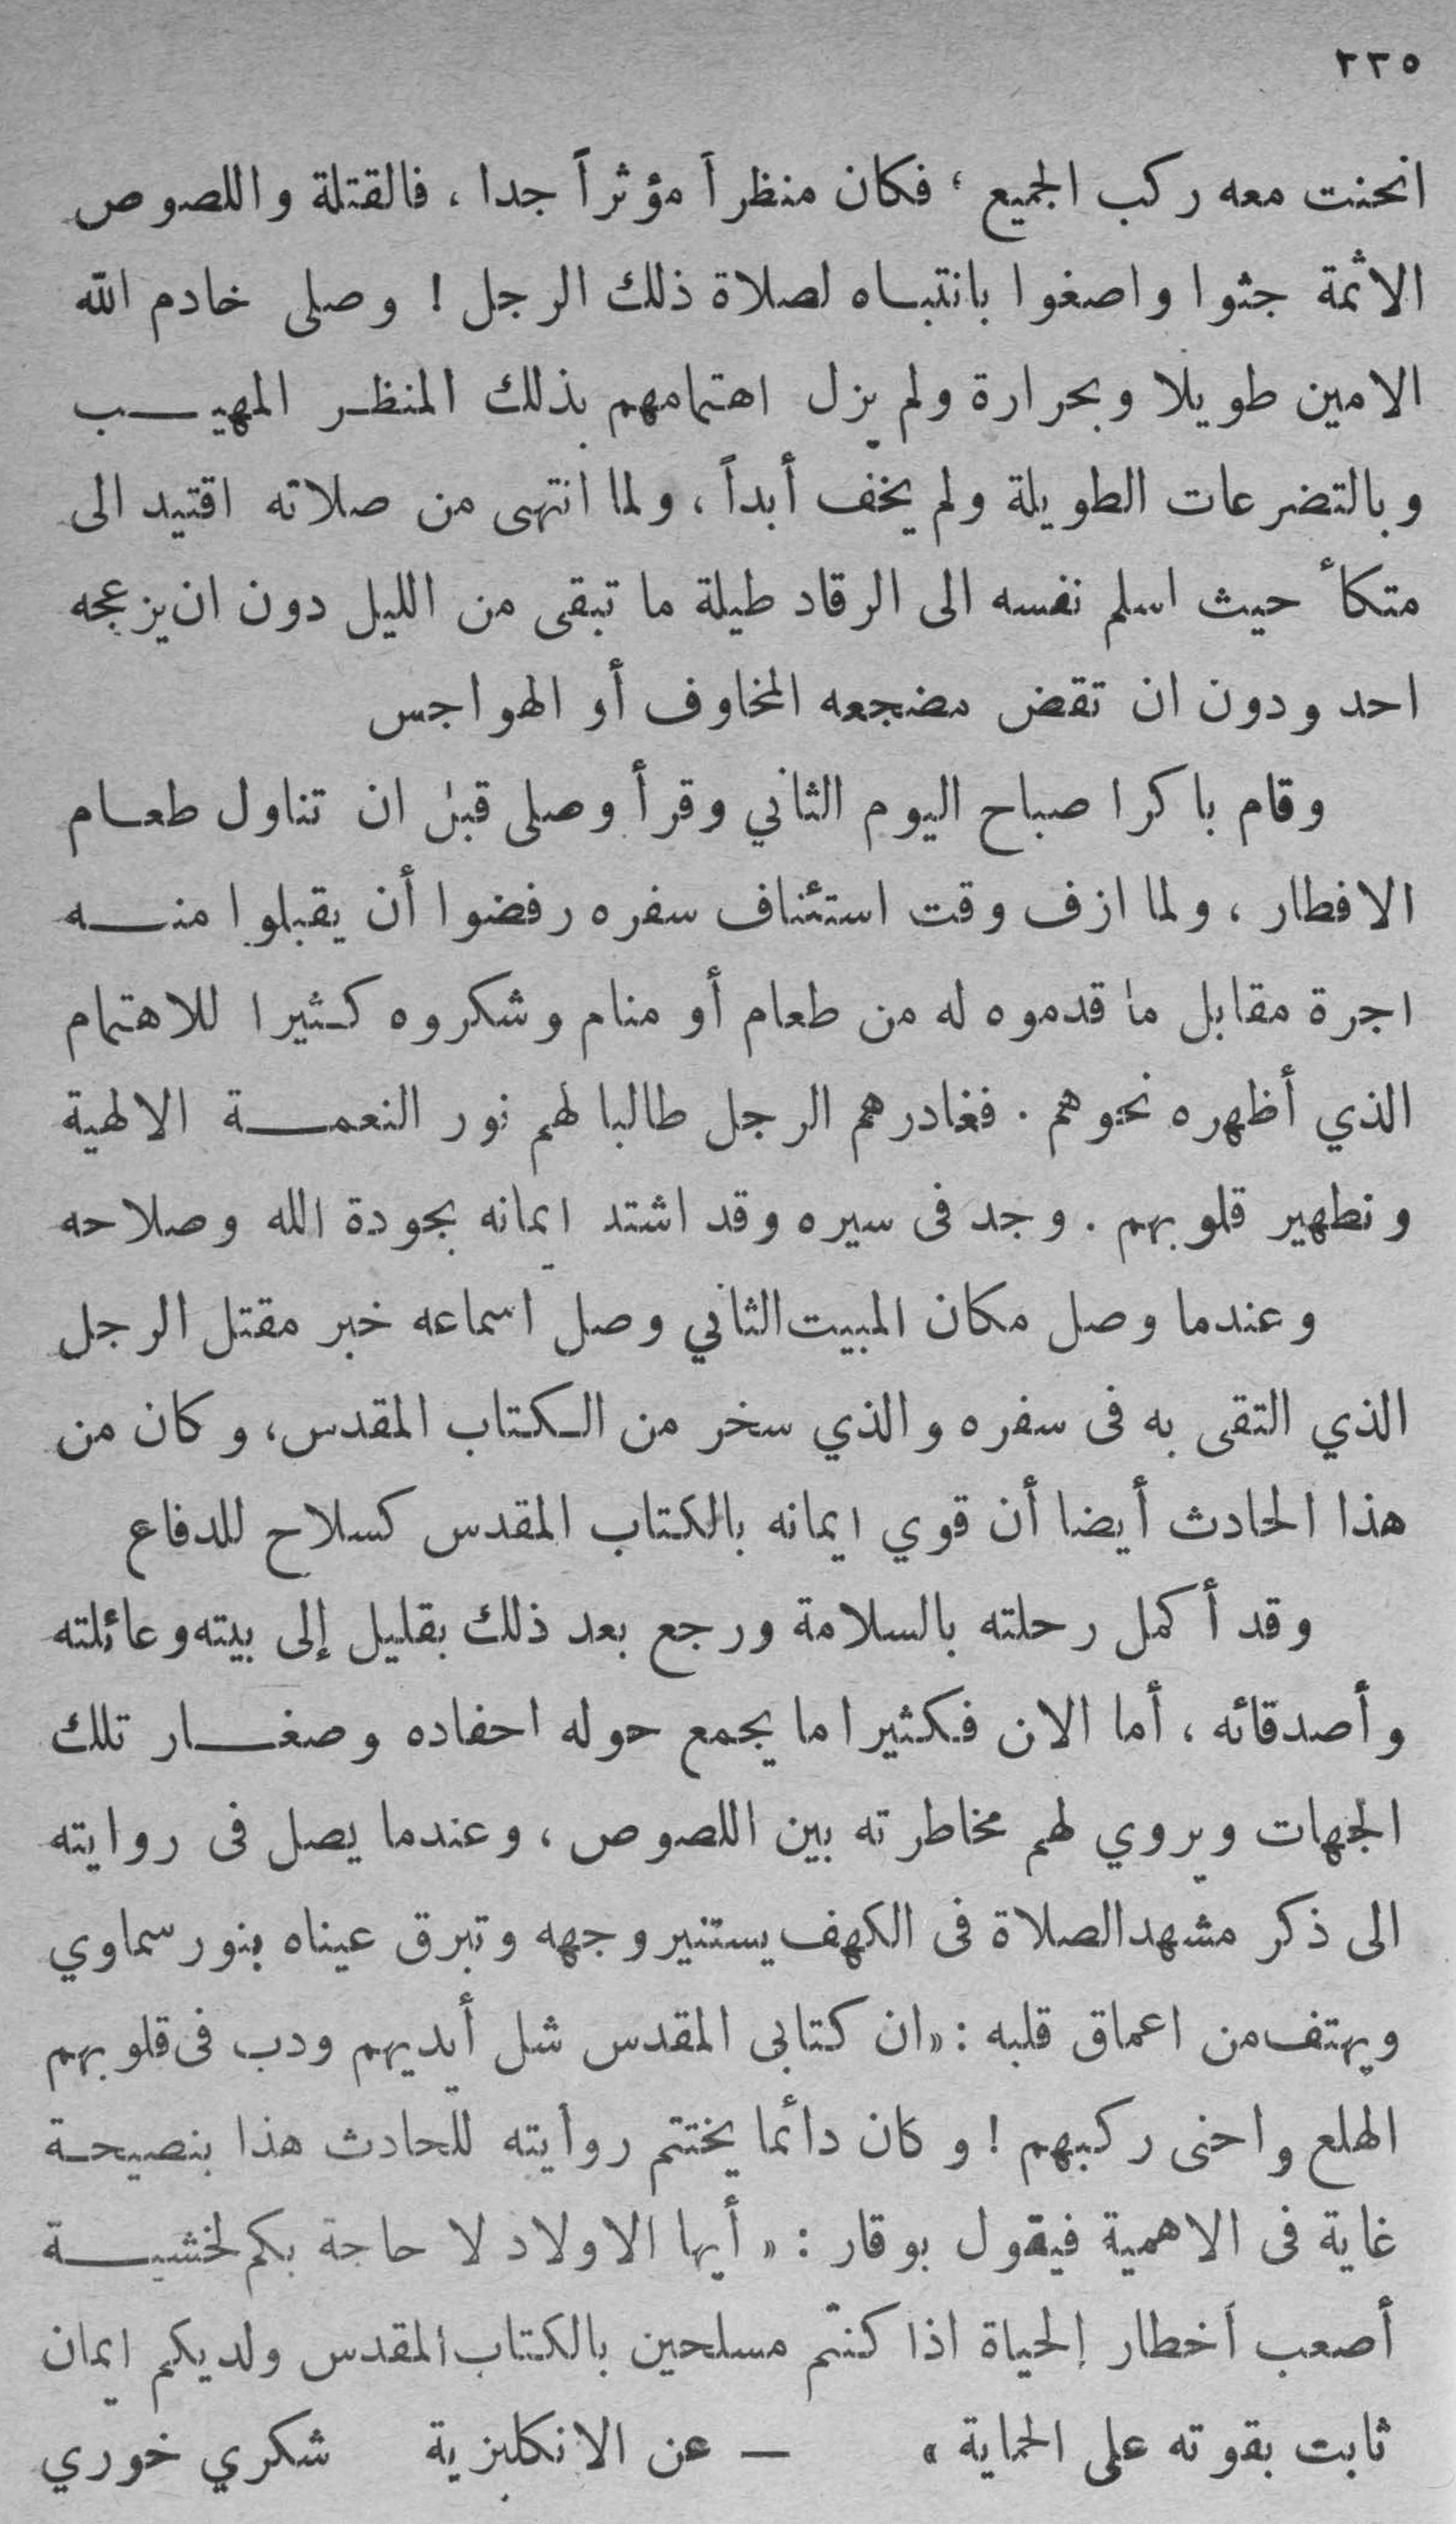 ٢٢٥
انحنت معه ركب الجميع ؛ فكان منظراً مؤثراً جدا ، فالقتلة واللصوص
الاثمة جثوا واصغوا بانتباه لصلاة ذلك الرجل ! وصلى خادم الله
الامين طويلا وبحرارة ولم يزل اهتمامهم بذلك المنظر المهيب
وبالتضرعات الطويلة ولم يخف أبداً ، ولما انتهى من صلاته اقتيد الى
متكأ حيث اسلم نفسه الى الرقاد طيلة ما تبقى من الليل دون ان يزعجه
احد ودون ان تقض مضجعه المخاوف أو الهواجس
وقام باكرا صباح اليوم الثاني وقرأ وصلى قبل ان تناول طعام
الافطار ، ولما ازف وقت استئناف سفره رفضوا أن يقبلوا منه
اجرة مقابل ما قدموه له من طعام أو منام وشكروه كثيرا للاهتمام
الذي أظهره نحوهم . فغادرهم الرجل طالبا لهم نور النعمة الالهية
وتطهير قلوبهم . وجد فى سيره وقد اشتد ايمانه بجودة الله وصلاحه
وعندما وصل مكان المبيت الثاني وصل اسماعه خبر مقتل الرجل
الذي التقى به فى سفره والذي سخر من الكتاب المقدس، وكان من
هذا الحادث أيضا أن قوي ايمانه بالكتاب المقدس كسلاح للدفاع
وقد أكمل رحلته بالسلامة ورجع بعد ذلك بقليل إلى بيته وعائلته
وأصدقائه ، أما الان فكثيرا ما يجمع حوله احفاده وصغار تلك
الجهات ويروي لهم مخاطرته بين اللصوص ، وعندما يصل فى روايته
الى ذكر مشهد الصلاة فى الكهف يستنير وجهه وتبرق عيناه بنور سماوي
ويهتف من اعماق قلبه : «ان كتابى المقدس شل أيديهم ودب فى قلوبهم
الهلع واحنى ركبهم ! وكان دائما يختتم روايته للحادث هذا بنصيحة
غاية فى الاهمية فيقول بوقار : « أيها الاولاد لا حاجة بكم لخشية
أصعب أخطار الحياة اذا كنتم مسلحين بالكتاب المقدس ولديكم ايمان
ثابت بقوته على الحماية » — عن الانكليزية شكري خوري